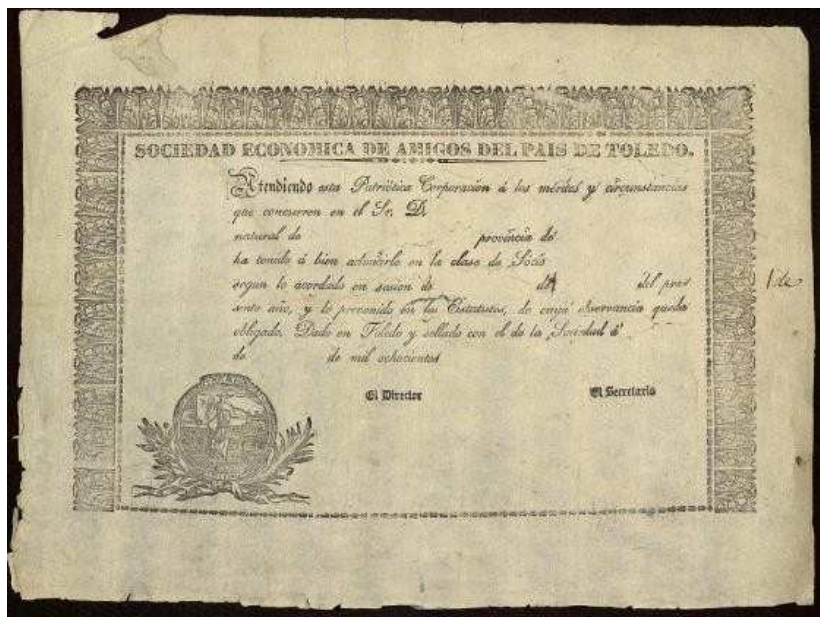 SOCIEDAD ECONOMICA DE AMIGOS DEL PAIS DE TOLEDO.
Atendiendo esta Patriótica Corporacion á los méritos y circunstancias
que concurren en el Sr. D.
natural de provincia de
ha tenido á bien admitirle en la clase de Socio
segun lo acordado en sesion de de del pre-
sente año, y lo prevenido en los Estatutos, de cuya observancia queda
obligado. Dado en Toledo y sellado con el de la Sociedad á
de de mil ochocientos
El Director El Secretario